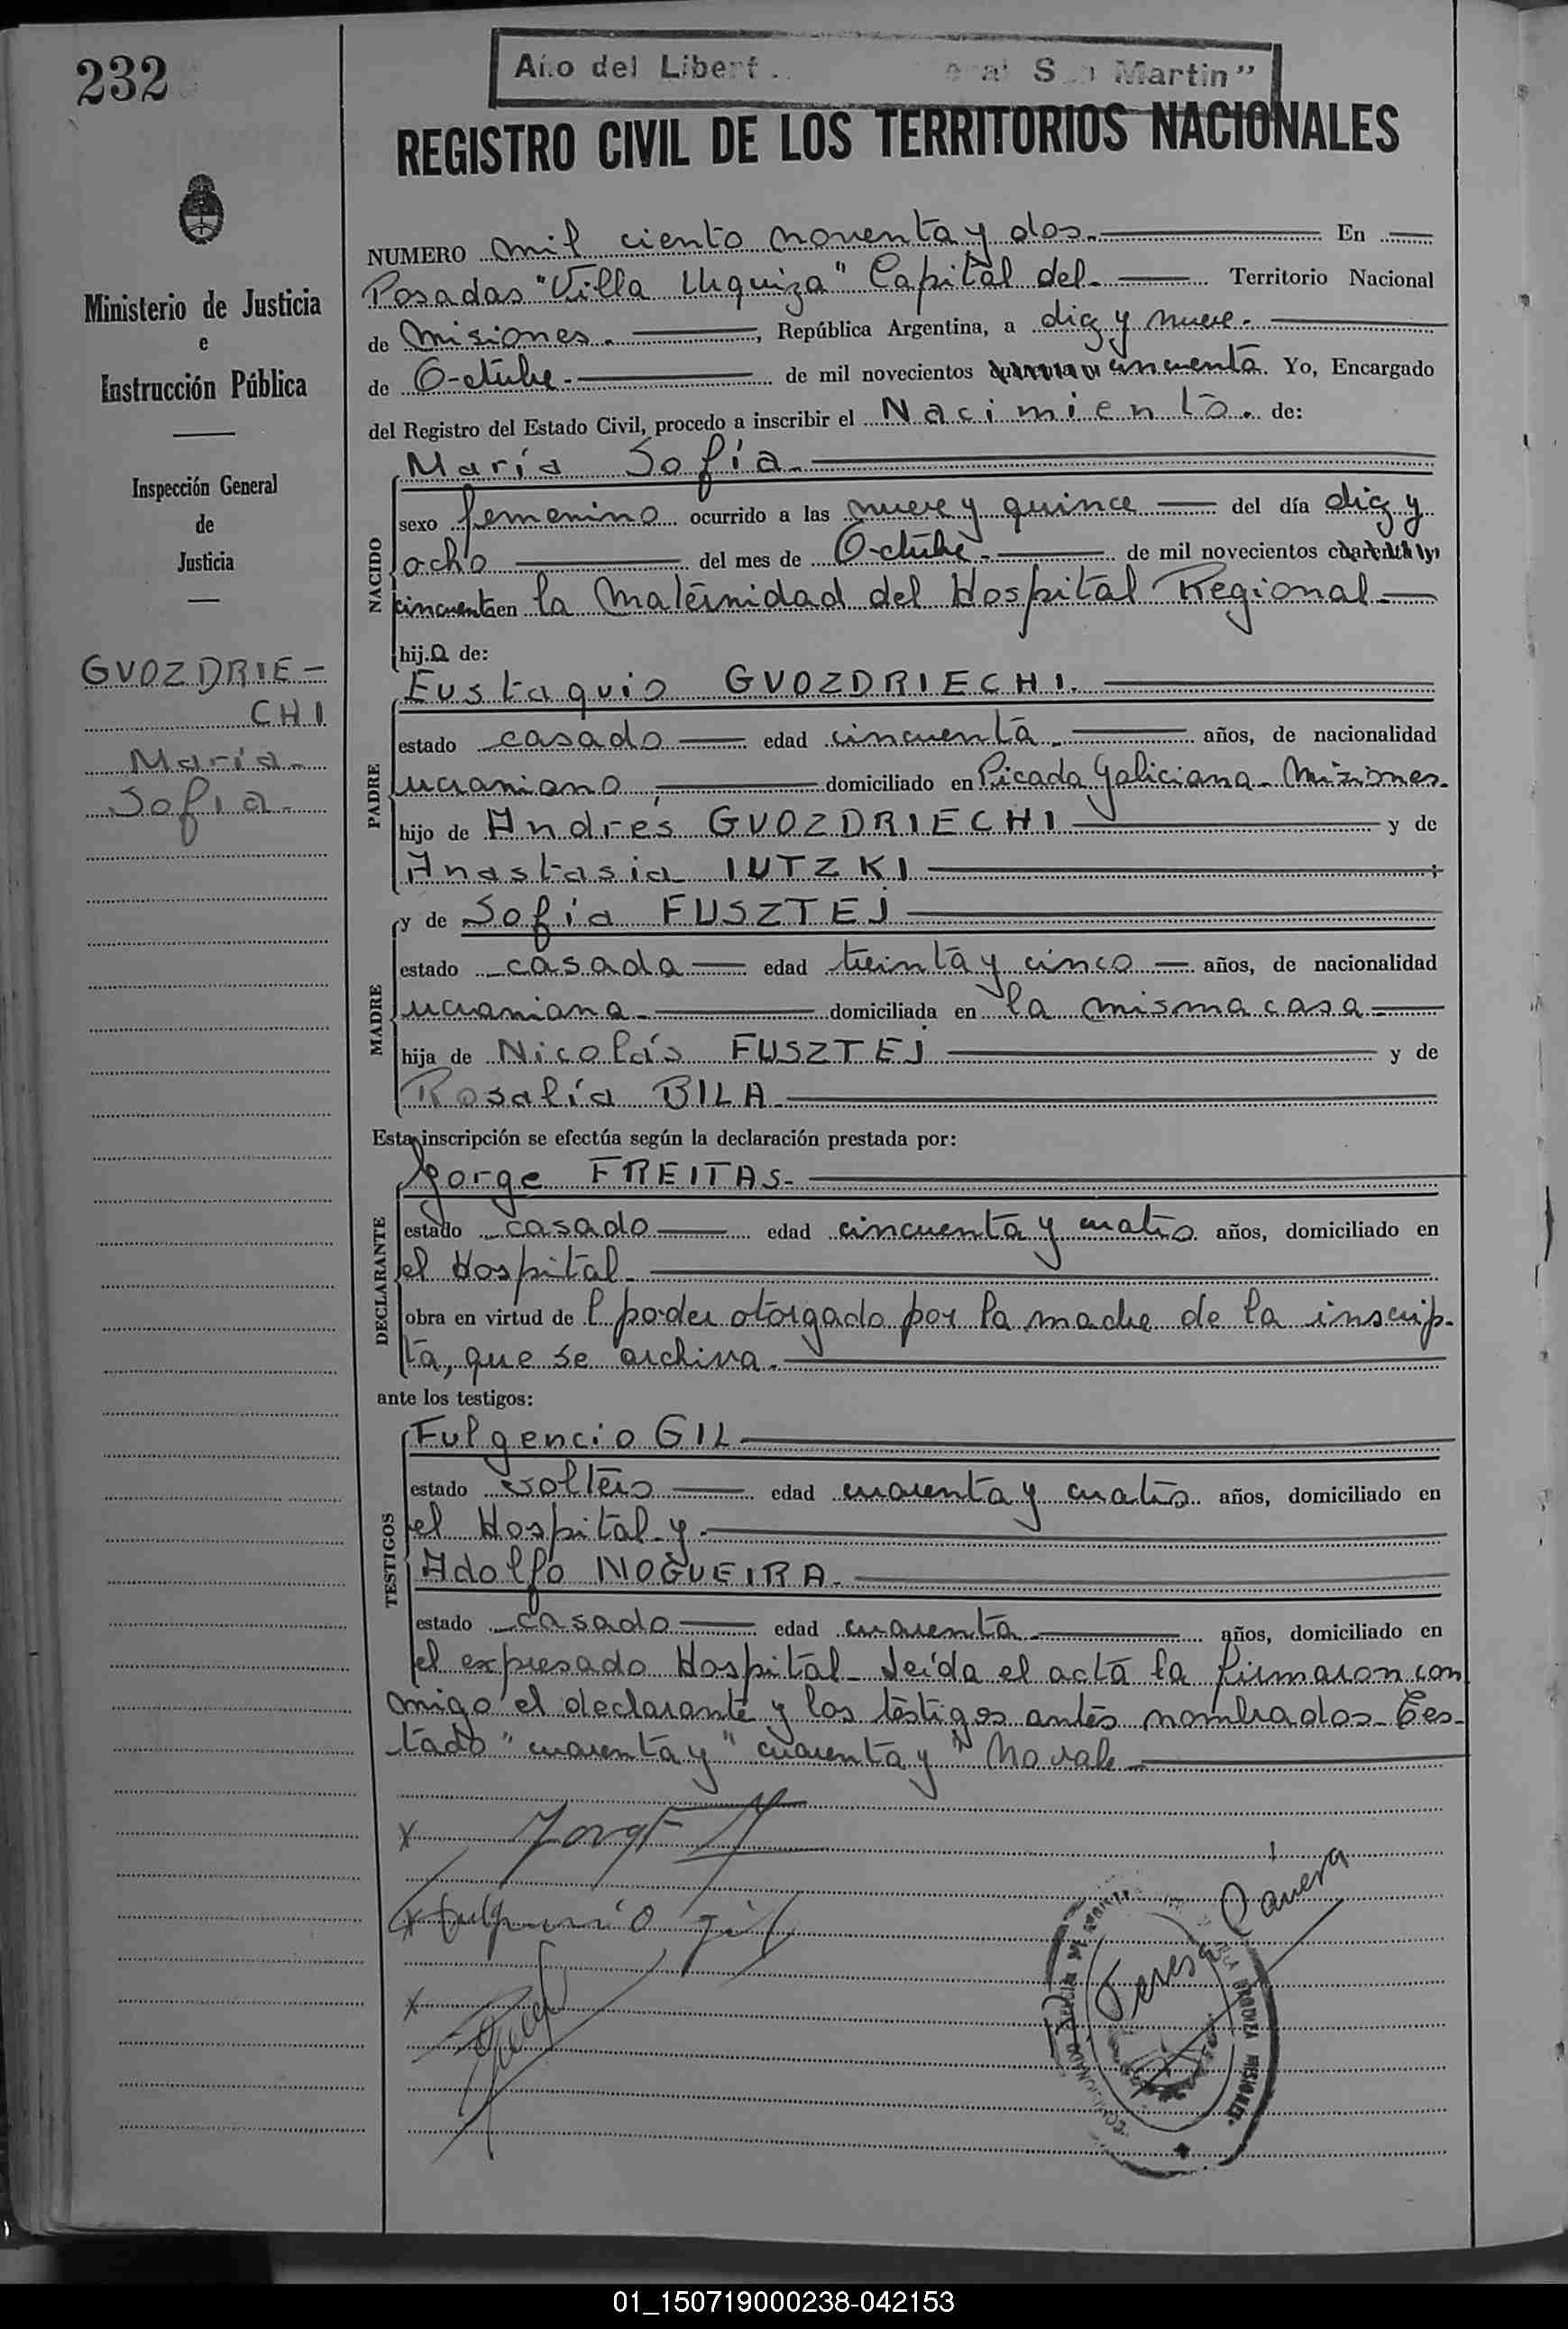 232
Año del Libert al San Martin"
REGISTRO CIVIL DE LOS TERRITORIOS NACIONALES
Ministerio de Justicia
e
Instrucción Pública
Inspección General
de
Justicia
GVOZDRIE-
CHI
María
Sofia.
NUMERO mil ciento noventa y dos.- En
Posadas "Villa Urquiza" Capital del.- Territorio Nacional
de Misiones.-, República Argentina, a diez y nueve.-
de Octubre.- de mil novecientos cincuenta. Yo, Encargado
del Registro del Estado Civil, procedo a inscribir el Nacimiento. de:
NACIDO
María Sofía.-
sexo femenino ocurrido a las nueve y quince — del día diez y
ocho — del mes de Octubre.- de mil novecientos cuarenta y
cincuenta en la Maternidad del Hospital Regional.-
hija de:
PADRE
Eustaquio GVOZDRIECHI.-
estado casado — edad cincuenta.- años, de nacionalidad
ucraniano domiciliado en Picada Galiciana - Misiones.
hijo de Andrés GVOZDRIECHI y de
Anastasia IUTZKI ;
MADRE
y de Sofía FUSZTEJ
estado casada — edad treinta y cinco — años, de nacionalidad
ucraniana.- domiciliada en la misma casa.-
hija de Nicolás FUSZTEJ y de
Rosalía BILA.-
Esta inscripción se efectúa según la declaración prestada por:
DECLARANTE
Jorge FREITAS.-
estado casado — edad cincuenta y cuatro años, domiciliado en
el Hospital.-
obra en virtud de l poder otorgado por la madre de la inscrip-
ta, que se archiva.-
ante los testigos:
TESTIGOS
Fulgencio GIL
estado soltero — edad cuarenta y cuatro años, domiciliado en
el Hospital y.-
Adolfo NOGUEIRA.-
estado casado — edad cuarenta.- años, domiciliado en
el expresado Hospital - Leída el acta la firmaron con
migo el declarante y los testigos antes nombrados - Tes-
tado "cuarenta y" cuarenta y" No vale.-
x Jorge
x Fulgencio Gil
x
Teresa
MISIONES
01_150719000238-042153